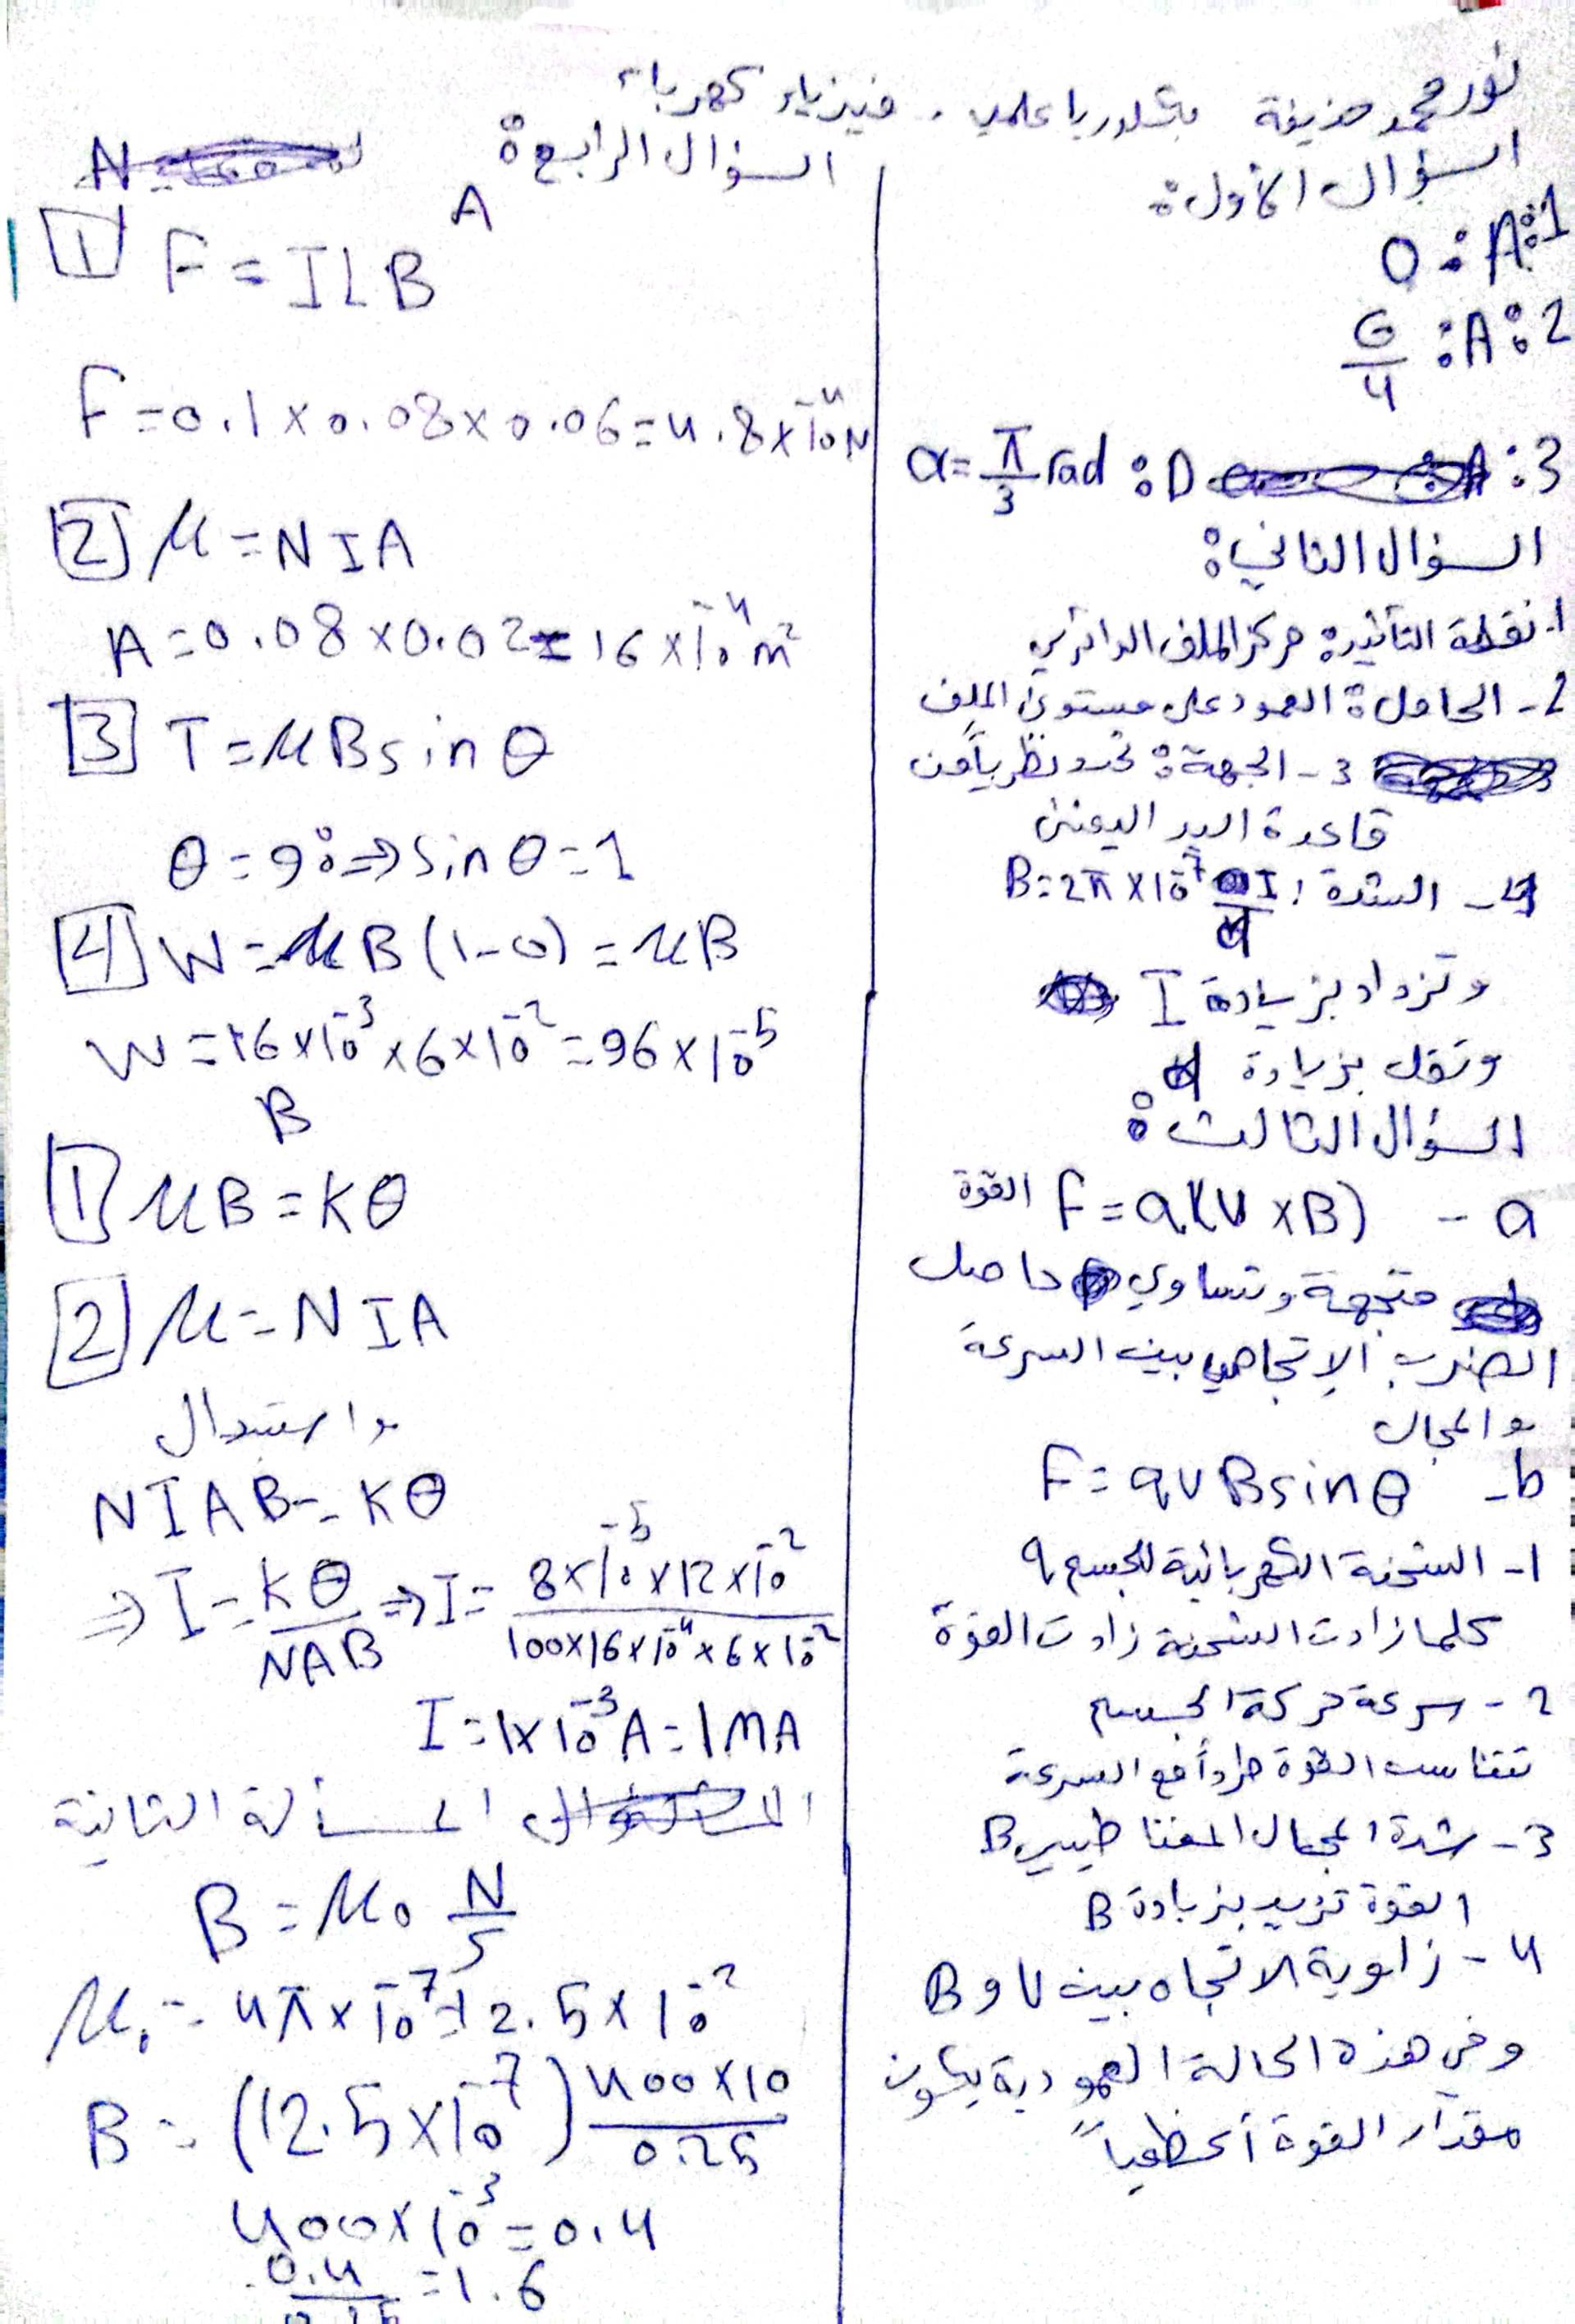 نور محمد حذيفة بكلوريا علمي . فيزياء كهرباء
السؤال الأول:
1: A: 0
2: A: G/4
3: D: α = π/3 rad
السؤال الثاني:
1. نقطة التأثير: مركز الملف الدائري
2- الحامل: العمود على مستوي الملف
3- الجهة: تحدد نظرياً من
قاعدة اليد اليمنى
4- الشدة: B = 2π × 10^-7 I/
وتزداد بزيادة I
وتقل بزيادة
السؤال الثالث:
a - F = q(V × B) القوة
متجهة وتساوي حاصل
الضرب الإتجاهي بين السرعة
والمجال
b- F = qvBsinθ
1- الشحنة الكهربائية للجسم q
كلما زادت الشحنة زادت القوة
2- سرعة حركة الجسم
تتناسب القوة طرداً مع السرعة
3- شدة المجال المغناطيسي B
القوة تزيد بزيادة B
4- زاوية الاتجاه بين V و B
وفي هذه الحالة العمودية يكون
مقدار القوة أعظمياً
السؤال الرابع:
A
1 F = ILB
F = 0.1 × 0.08 × 0.06 = 4.8 × 10^-4 N
2 μ = NIA
A = 0.08 × 0.02 = 16 × 10^-4 m²
3 T = μBsinθ
θ = 90° ⇒ sinθ = 1
4 W = μB(1-0) = μB
W = 16 × 10^-3 × 6 × 10^-2 = 96 × 10^-5
B
1 μB = Kθ
2 μ = NIA
واستبدال
NIAB = Kθ
⇒ I = Kθ/NAB ⇒ I = 8 × 10^-5 × 12 × 10^-2 / 100 × 16 × 10^-4 × 6 × 10^-2
I = 1 × 10^-3 A = 1 mA
المسألة الثانية
B = μ₀ N/
μ₀ = 4π × 10^-7 = 12.5 × 10^-7
B = (12.5 × 10^-7) 400 × 10 / 0.25
400 × 10^-3 = 0.4
0.4/0.25 = 1.6